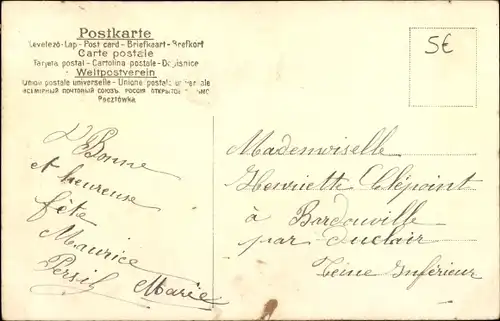 Postkarte
Levelező-Lap - Post card - Briefkaart - Brefkort
Carte postale
Tarjeta postal - Cartolina postale - Dopisnice
Weltpostverein
Union postale universelle - Unione postale universale
ВСЕМІРНЫЙ ПОЧТОВЫЙ СОЮЗЪ. РОССІЯ ОТКРЫТОЕ
Pocztówka
5€
Bonne
et heureuse
fête
Maurice
Persil Marie
Mademoiselle
Henriette Clépoint
à Bardouville
par Duclair
Seine Inférieur